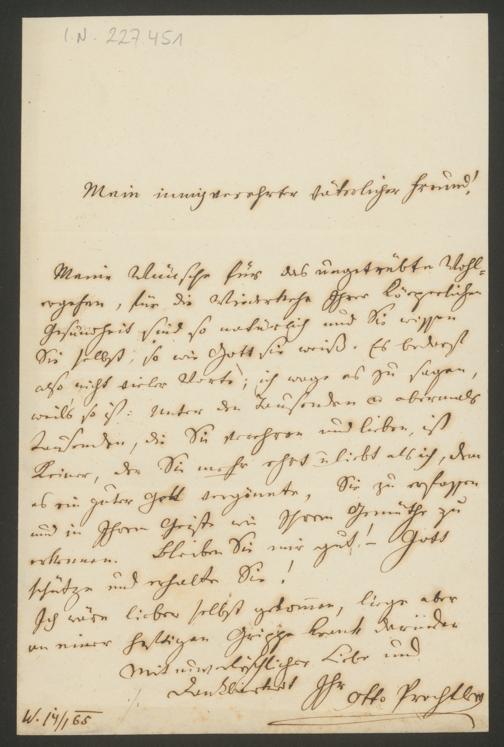 I.N. 227.451
Mein innigverehrter väterlicher Freund!
Meine Wünsche für das ungetrübte Wohl-
ergehen, für die Wiederkehr Ihrer körperlichen
Gesundheit sind so natürlich und Sie wissen
Sie selbst, so wie Gott sie weiß. Es bedarf
also nicht vieler Worte; ich wage es zu sagen,
weils so ist: Unter den Tausenden u abermals
Tausenden, die Sie verehren und lieben, ist
Keiner, der Sie mehr ehrt u liebt als ich, dem
es ein guter Gott vergönnte, Sie zu erfassen
und in Ihrem Geiste wie Ihrem Gemüthe zu
erkennen. Bleiben Sie mir gut! – Gott
schütze und erhalte Sie!
Ich wäre lieber selbst gekommen, liege aber
an einer heftigen Grippe krank darnieder
Mit unverlöschlicher Liebe und
Dankbarkeit Ihr Otto Prechtler
W. 14/1 65